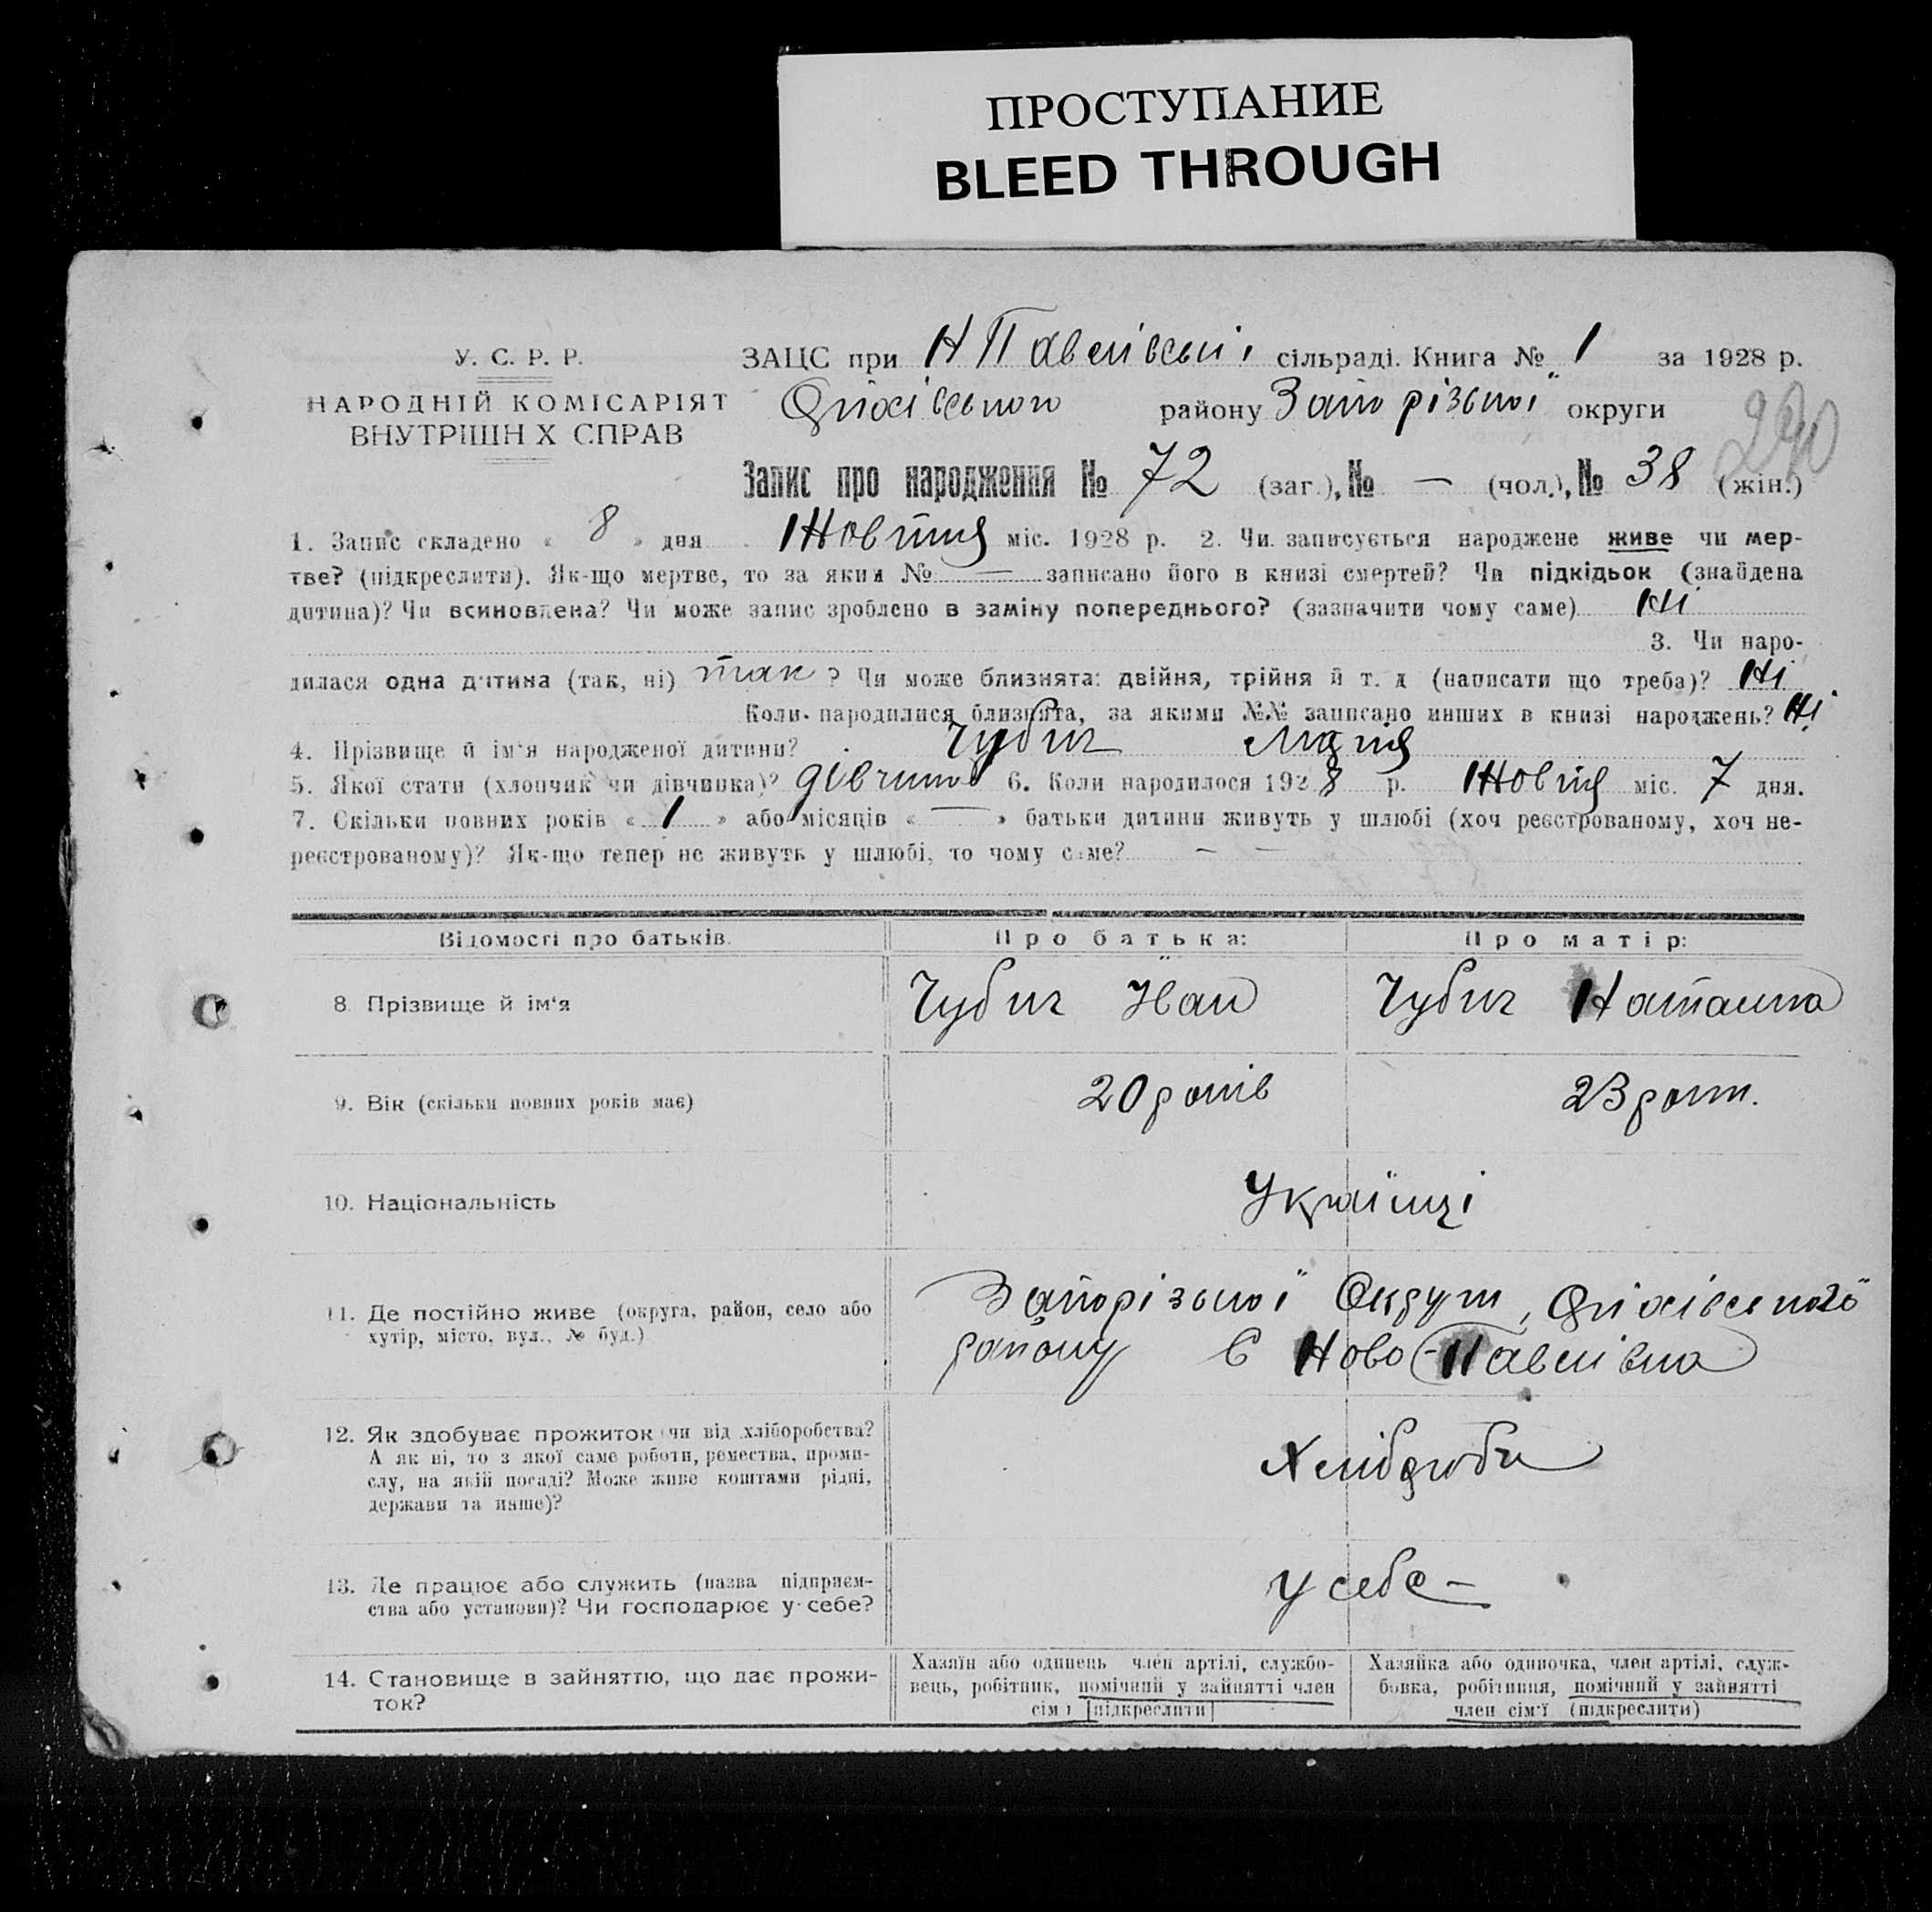 ПРОСТУПАНИЕ
BLEED THROUGH
У. С. Р. Р.
НАРОДНІЙ КОМІСАРІЯТ
ВНУТРІШН Х СПРАВ
ЗАЦС при Н Павлівській сільраді. Книга № 1 за 1928 р.
Оріхівського району Запорізької округи
290
Запис про народження № 72 (заг.), № — (чол.), № 38 (жін.)
1. Запис складено « 8 » дня Жовтня міс. 1928 р. 2. Чи записується народжене живе чи мер-
тве? (підкреслити). Як-що мертве, то за яким № — записано його в книзі смертей? Чи підкідьок (знайдена
дитина)? Чи всиновлена? Чи може запис зроблено в заміну попереднього? (зазначити чому саме) Ні
3. Чи наро-
дилася одна дитина (так, ні) так ? Чи може близнята: двійня, трійня й т. д (написати що треба)? Ні
Коли народилися близнята, за якими №№ записано инших в книзі народжень? Ні
4. Прізвище й ім'я народженої дитини? Чубич
5. Якої статі (хлопчик чи дівчинка)? дівчина 6. Коли народилося 1928 р. Жовтня міс. 7 дня.
7. Скільки повних років « 1 » або місяців « — » батьки дитини живуть у шлюбі (хоч реєстрованому, хоч не-
реєстрованому)? Як-що тепер не живуть у шлюбі, то чому саме? — —
Відомості про батьків.
Про батька:
Про матір:
8. Прізвище й ім'я
Чубич Іван
Чубич Наталка
9. Вік (скільки повних років має)
20 років
23 рок.
10. Національність
Українці
11. Де постійно живе (округа, район, село або
хутір, місто, вул., № буд.)
Запорізької Округи, Оріхівського
району с Ново-Павлівка
12. Як здобуває прожиток чи від хліборобства?
А як ні, то з якої саме роботи, ремества, проми-
слу, на якій посаді? Може живе коштами рідні,
держави та инше)?
Хлібороби
13. Де працює або служить (назва підприєм-
ства або установи)? Чи господарює у себе?
у себе —
14. Становище в зайняттю, що дає прожи-
ток?
Хазяїн або одинець член артілі, службо-
вець, робітник, помічний у зайнятті член
сім ї [підкреслити]
Хазяйка або одиночка, член артілі, служ-
бовка, робітниця, помічний у зайнятті
член сім'ї (підкреслити)